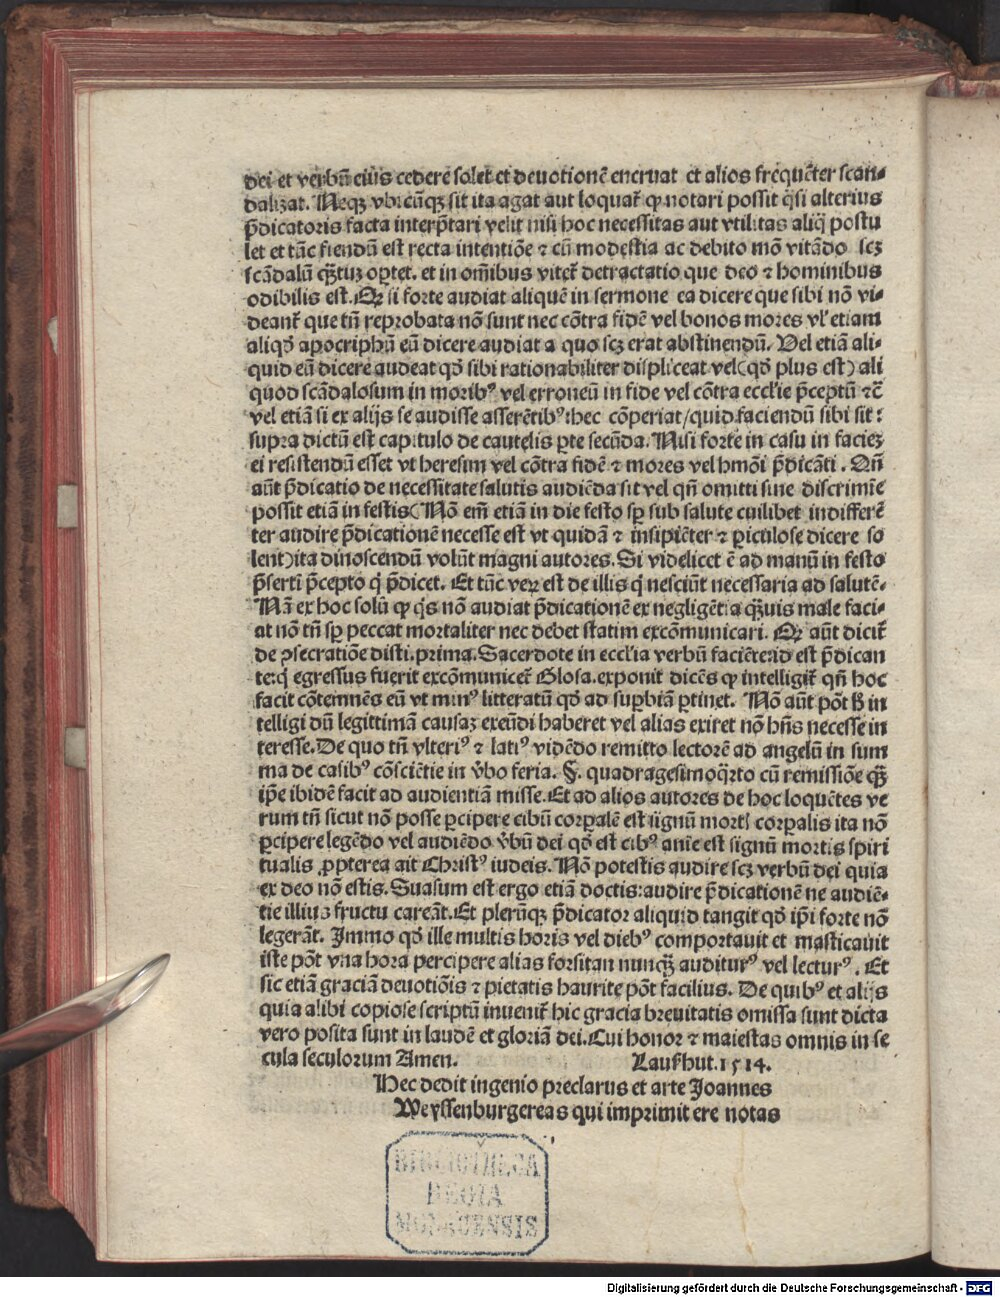 dei et verbū eius cedere solet et deuotionē eneruat et alios frequēter scan-
dalizat. Neqꝫ vbicūqꝫ sit ita agat aut loquat᷑ ꝙ notari possit q̄si alterius
p̄dicatoris facta interp̄tari velit nisi hoc necessitas aut vtilitas aliq̄ postu
let et tūc fiendū est recta intentiōe ⁊ cū modestia ac debito mō vitādo scꝫ
scādalū q̄ꝫtuꝫ oꝑtet. et in oīnibus vitet᷑ detractatio que deo ⁊ hominibus
odibilis est. Qꝛ si forte audiat aliquē in sermone ea dicere que sibi nō vi-
deant᷑ que tn̄ reprobata nō sunt nec cōtra fidē vel bonos mores vl' etiam
aliqd̄ apocriphū eū dicere audiat a quo scꝫ erat abstinendū. Vel etiā ali-
quid eū dicere audeat qd̄ sibi rationabiliter displiceat vel (qd̄ plus est) ali
quod scādalosum in moribꝰ vel erroneū in fide vel cōtra eccl'ie p̄ceptū ⁊c̄
vel etiā si ex alijs se audisse asserētibꝰ: hec cōperiat / quid faciendū sibi sit:
supra dictū est capitulo de cautelis ꝑte secūda. Nisi forte in casu in facieꝫ
ei resistendū esset vt heresim vel cōtra fidē ⁊ mores vel hmōi p̄dicāti. Qn̄
aūt p̄dicatio de necessitate salutis audiēda sit vel qn̄ omitti sine discrimīe
possit etiā in festis (Nō em̄ etiā in die festo sꝑ sub salute cuilibet indifferē
ter audire p̄dicationē necesse est vt quidā ⁊ insipiēter ⁊ ꝑiculose dicere so
lent) ita dinoscendū volūt magni autores. Si videlicet ē ad manū in festo
p̄serti p̄cepto q̄ p̄dicet. Et tūc veꝝ est de illis q̄ nesciūt necessaria ad salutē.
Nā ex hoc solū ꝙ q̄s nō audiat p̄dicationē ex negligētia q̄ꝫuis male faci-
at nō tn̄ sꝑ peccat mortaliter nec debet statim excōmunicari. Qꝛ aūt dicit᷑
de ꝯsecratiōe disti. prima. Sacerdote in eccl'ia verbū faciēte: id est p̄dican
te: q̄ egressus fuerit excōmunicet᷑ Glosa. exponit dicēs ꝙ intelligit᷑ qn̄ hoc
facit cōtemnēs eū vt minꝰ litteratū qd̄ ad suꝑbiā ꝑtinet. Nō aūt pōt h̄ in
telligi dū legittimā causaꝫ exeūdi haberet vel alias exiret nō hn̄s necesse in
teresse. De quo tn̄ vlteriꝰ ⁊ latiꝰ vidēdo remitto lectorē ad angelū in sum
ma de casibꝰ cōsciētie in v̄bo feria. §. quadragesimoq̄rto cū remissiōe q̄ꝫ
ip̄e ibidē facit ad audientiā misse. Et ad alios autores de hoc loquētes ve
rum tn̄ sicut nō posse ꝑcipere cibū corꝑalē est signū mortꝭ corꝑalis ita nō
ꝑcipere legēdo vel audiēdo v̄bū dei qd̄ est cibꝰ anīe est signū mortis spiri
tualis ꝓpterea ait Christꝰ iudeis. Nō potestis audire scꝫ verbū dei quia
ex deo nō estis. Suasum est ergo etiā doctis: audire p̄dicationē ne audiē-
tie illius fructu careāt. Et plerūqꝫ p̄dicator aliquid tangit qd̄ ip̄i forte nō
legerāt. Immo qd̄ ille multis horis vel diebꝰ comportauit et masticauit
iste pōt vna hora percipere alias forsitan nunq̄ꝫ auditurꝰ vel lecturꝰ. Et
sic etiā graciā deuotiōis ⁊ pietatis haurire pōt facilius. De quibꝰ et alijs
quia alibi copiose scriptū inuenit᷑ hic gracia breuitatis omissa sunt dicta
vero posita sunt in laudē et gloriā dei. Cui honor ⁊ maiestas omnis in se
cula seculorum Amen. Laufhut. 1514.
Hec dedit ingenio preclarus et arte Joannes
Weyssenburger eas qui imprimit ere notas
BIBLIOTHECA
REGIA
MONACENSIS
Digitalisierung gefördert durch die Deutsche Forschungsgemeinschaft - DFG